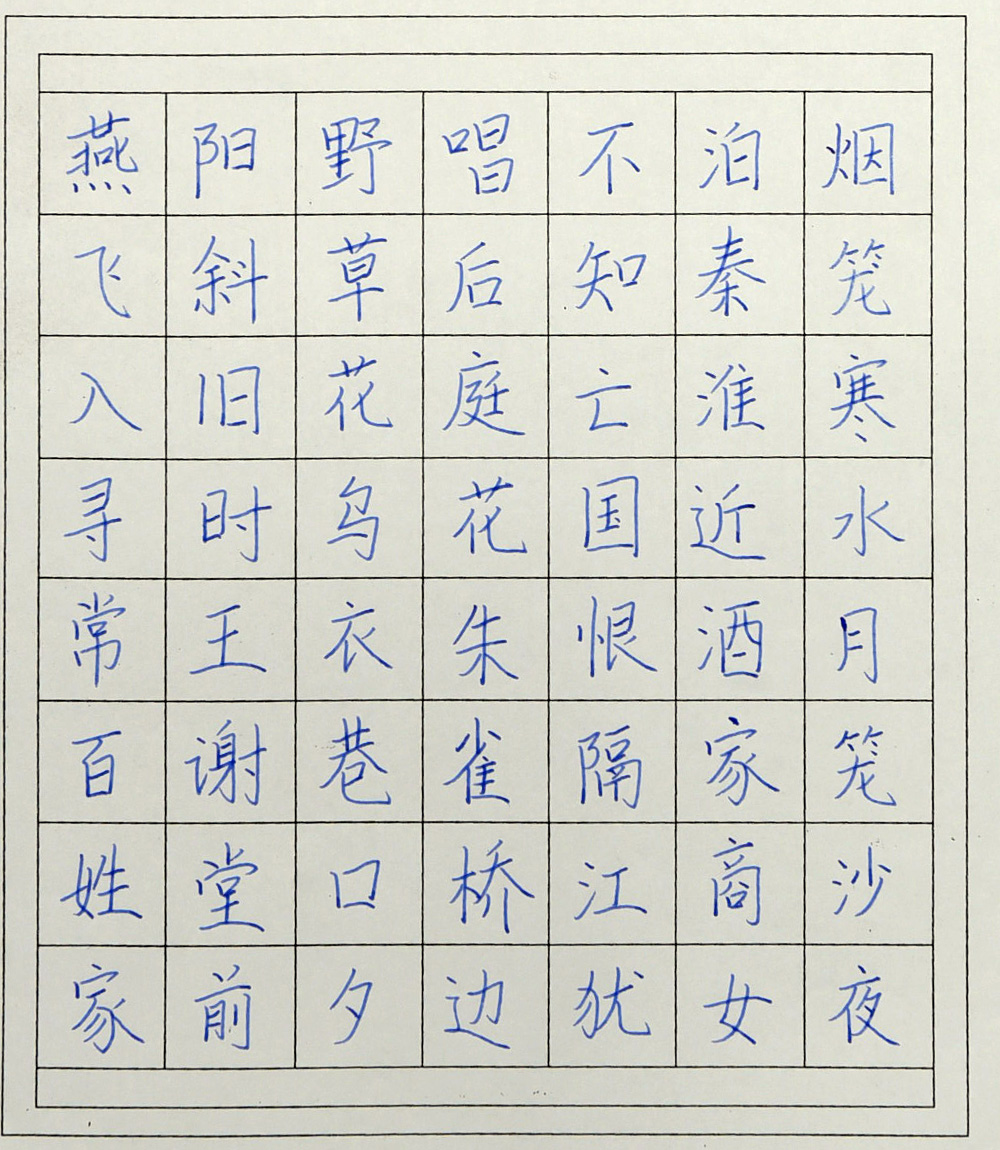 烟笼寒水月笼沙夜
泊秦淮近酒家商女
不知亡国恨隔江犹
唱后庭花朱雀桥边
野草花乌衣巷口夕
阳斜旧时王谢堂前
燕飞入寻常百姓家